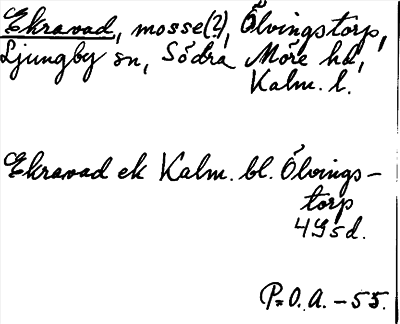 Ekravad, mosse(?), Ölvingstorp,
Ljungby sn, Södra Möre hd,
Kalm. l.
Ekravad ek Kalm. bl. Ölvings-
torp
4Gsd.
P=O.A. - 55.